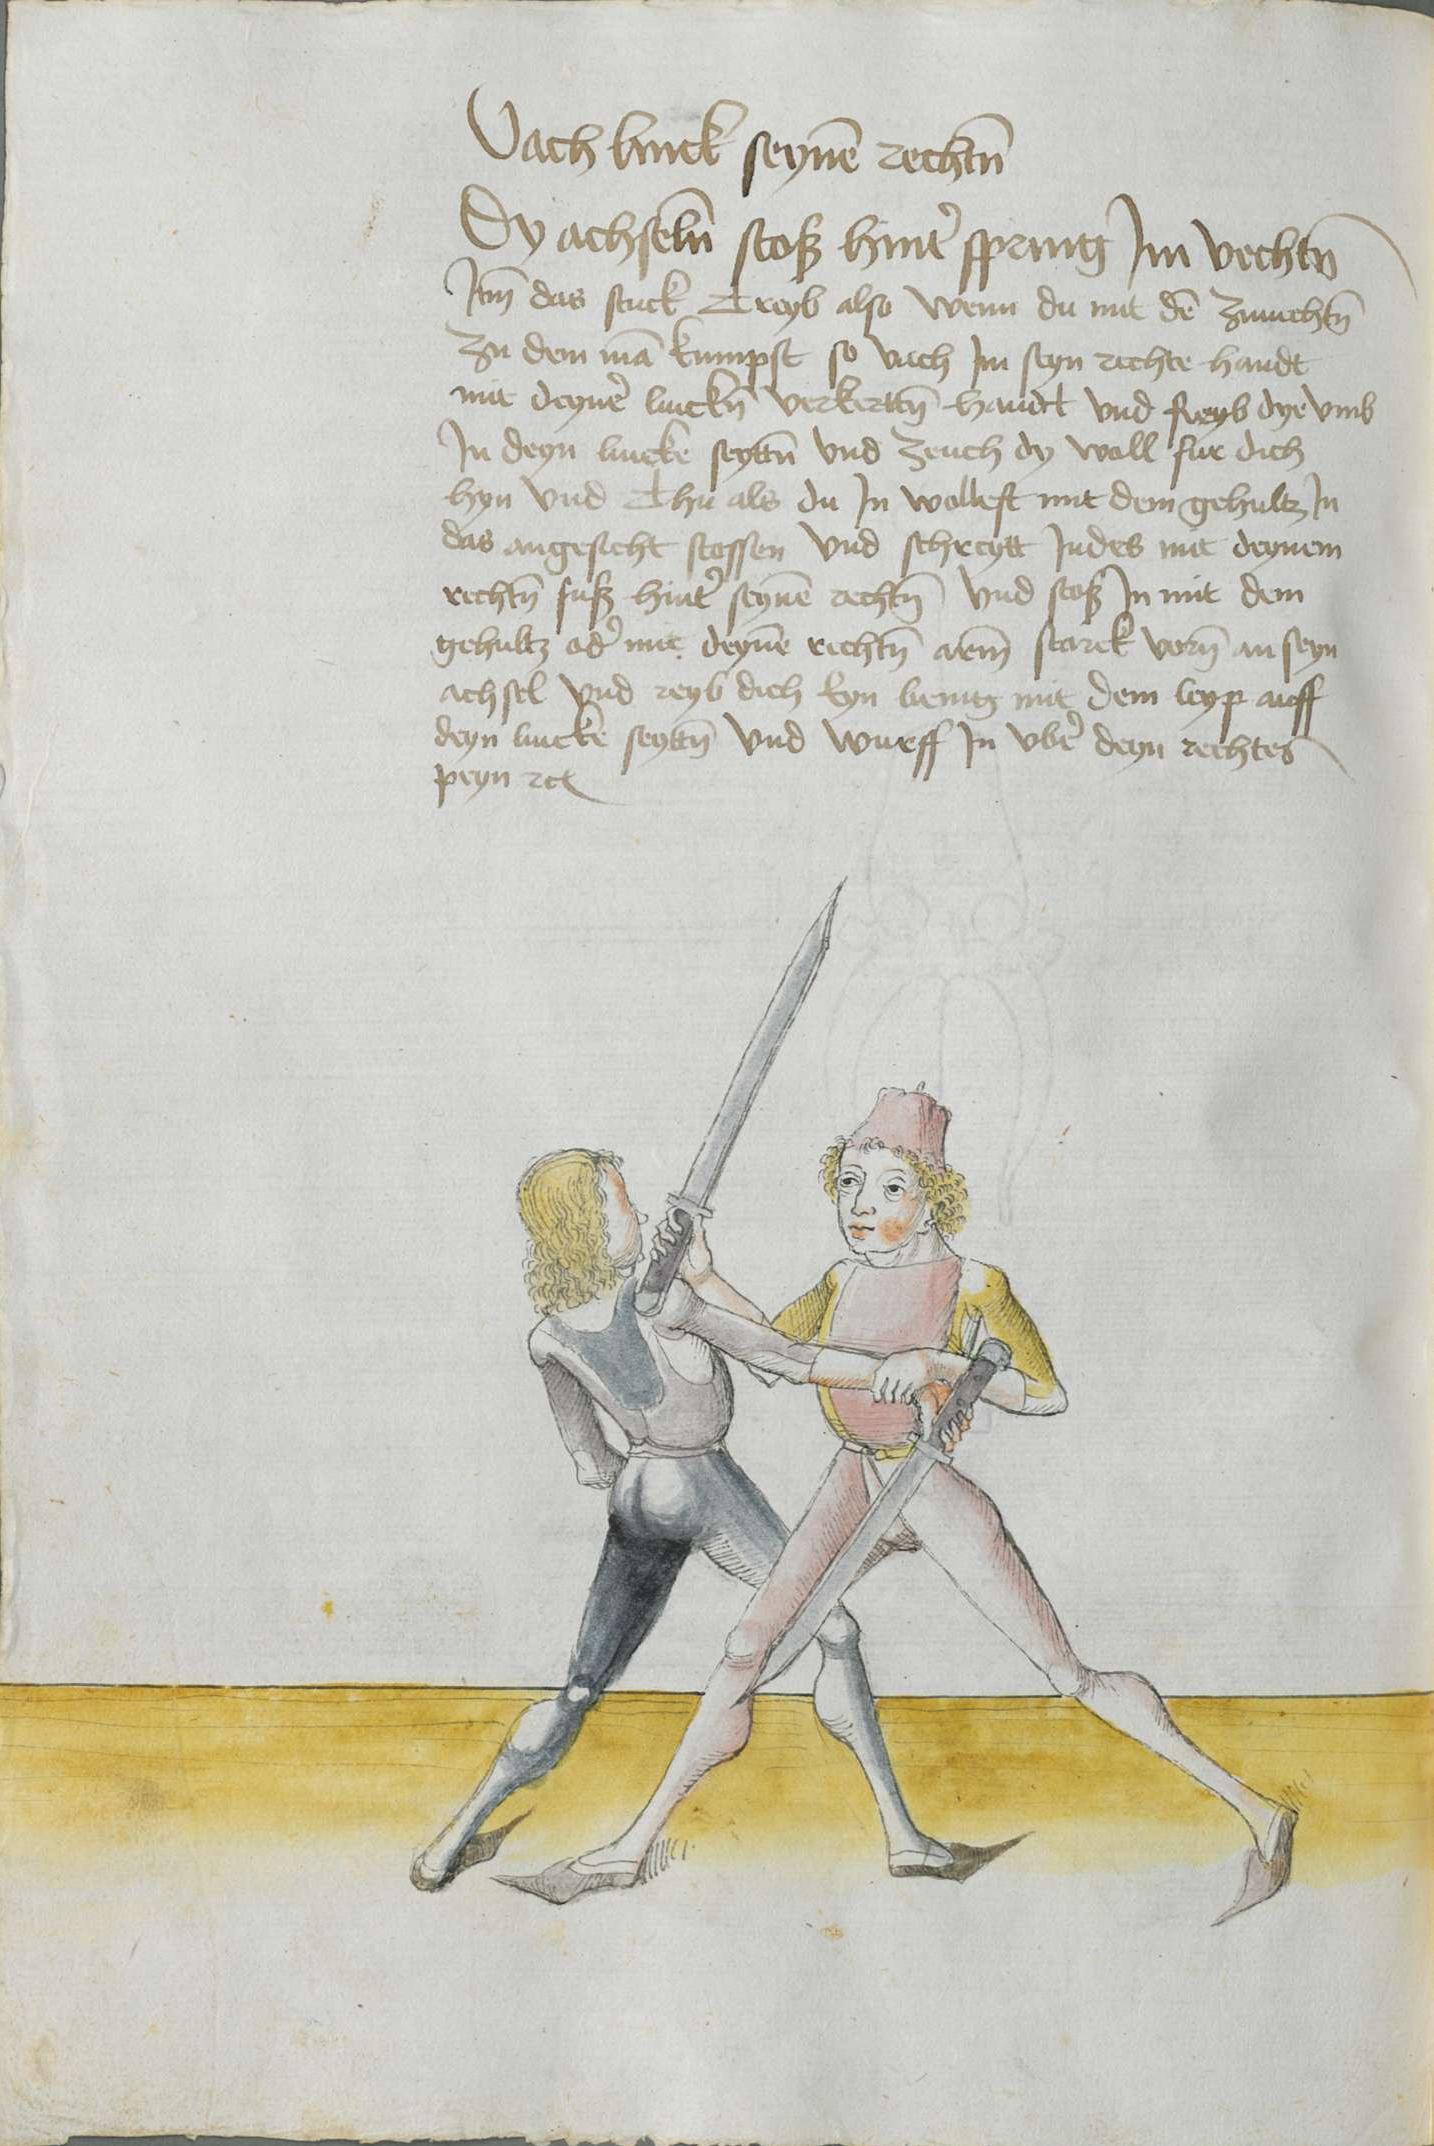 Vach linck seynē rechtn̄
Dy achseln̄ stoß hintʾ spring Im vechtn̄
Itm̄ das stuck Treyb also wenn du mit dē Zuuechtn̄
Zu dem mā kumpst so vach Im seyn rechte handt
mit deynʾ linckn̄ verkerttn̄ handt vnd Reyb dye vmb
In deyn lincke seyttn̄ vnd Zeuch dy woll fur dich
hyn vnd Thu als du In wollest mit dem gehultz In
das angesicht stossen vnd schreytt Indes mit deynem
rechtn̄ fuß hintʾ seynē rechtn̄ vnd stoß In mit dem
gehultz odʾ mit deynē rechtn̄ arm̄ starck vorn̄ an seyn
achsel vnd reyb dich eyn wenig mit dem leyp auff
deyn lincke seyttn̄ vnd wurff In vbʾ deyn rechtes
peyn rc